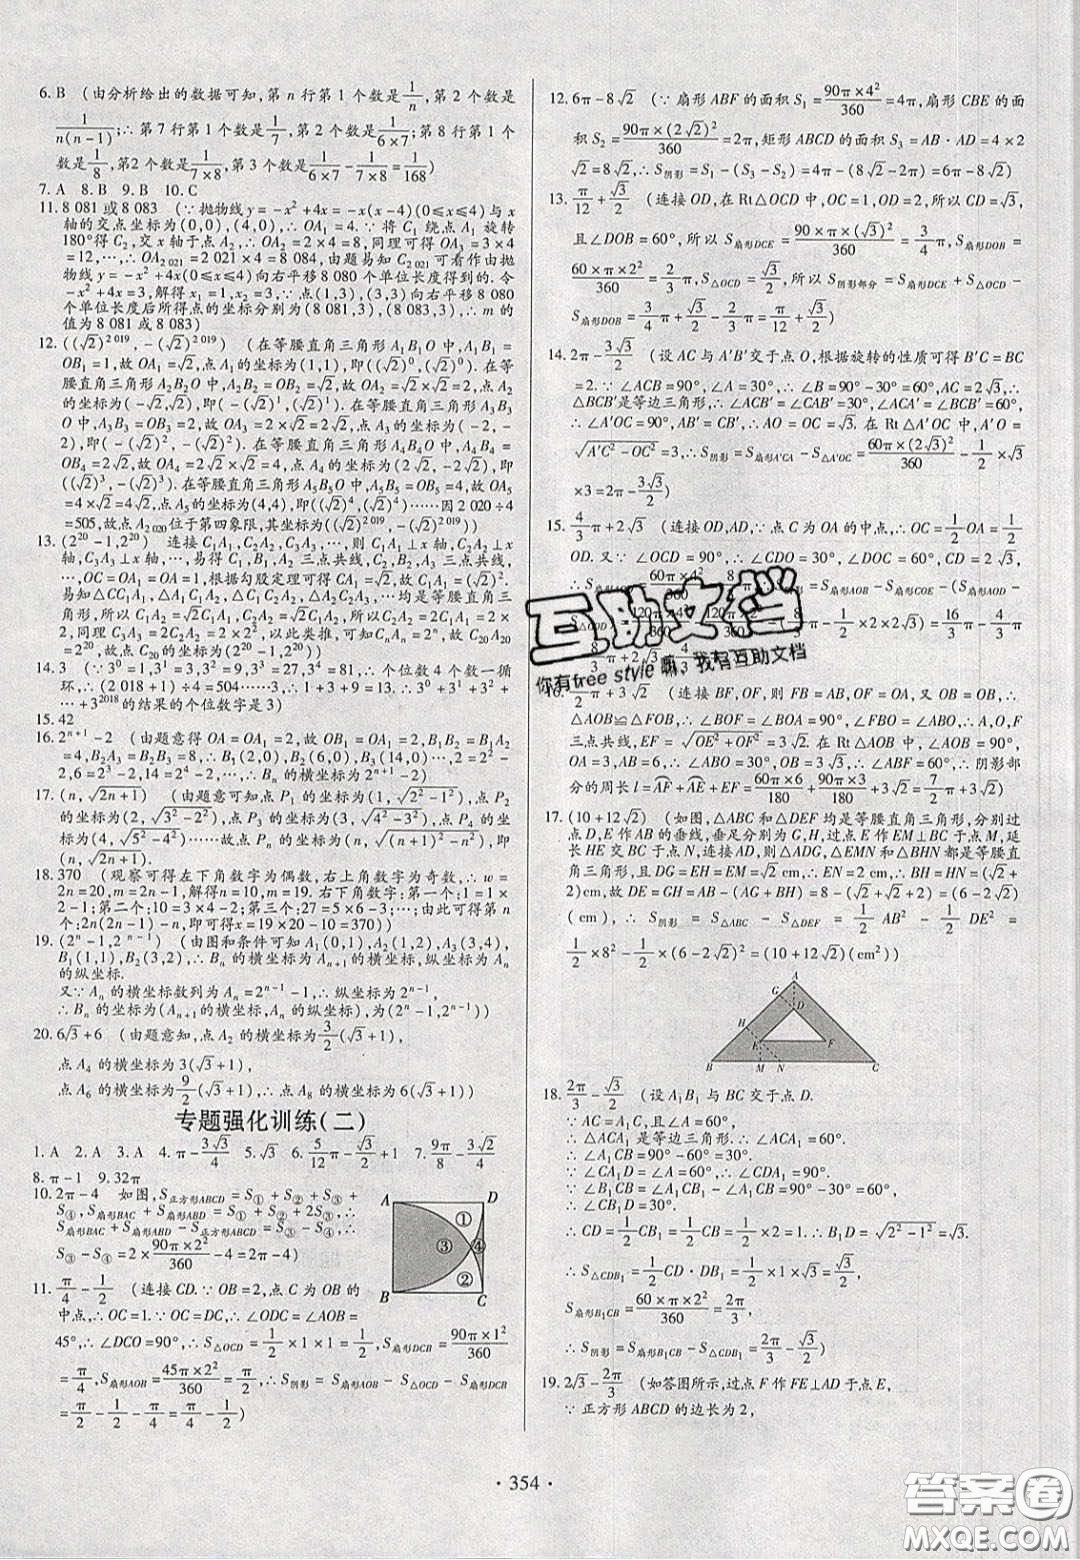 6. B (由分析给出的数据可知,第 n 行第 1 个数是1/n,第 2 个数是
1/n(n-1);∴第 7 行第 1 个数是1/7,第 2 个数是1/(6×7);第 8 行第 1 个
数是1/8,第2 个数是1/(7×8),第 3 个数是1/(6×7)-1/(7×8)=1/168)
7. A 8. B 9. B 10. C
11. 8 081 或 8 083 (∵抛物线 y=-x²+4x=-x(x-4)(0≤x≤4)与 x
轴的交点坐标为(0,0),(4,0),∴OA₁=4.∵将 C₁ 绕点 A₁ 旋转
180°得 C₂,交 x 轴于点 A₂,∴OA₂=2×4=8,同理可得 OA₃=3×4
=12,…,∴OA₂₀₂₁=2 021×4=8 084,由题易知 C₂₀₂₁可看作由抛物
线 y=-x²+4x(0≤x≤4)向右平移 8 080 个单位长度得到的.令
-x²+4x=3,解得 x₁=1,x₂=3,点(1,3),(3,3)向右平移 8 080
个单位长度后所得点的坐标分别为(8 081,3),(8 083,3),∴m 的
值为 8 081 或 8 083)
12. ((√2)²⁰¹⁹,-(√2)²⁰¹⁹) (在等腰直角三角形 A₁B₁O 中,A₁B₁=
OB₁=1,故 OA₁=√2,点 A₁ 的坐标为(1,1),即((√2)⁰,(√2)⁰).在等
腰直角三角形 A₂B₂O 中,A₂B₂=OB₂=√2,故 OA₂=√2×√2=2,点 A₂
的坐标为(-√2,√2),即(-(√2)¹,(√2)¹).在等腰直角三角形 A₃B₃
O 中,A₃B₃=OB₃=2,故 OA₃=2×√2=2√2,点 A₃ 的坐标为(-2,-
2),即(-(√2)²,-(√2)²).在等腰直角三角形 A₄B₄O 中,A₄B₄=OB₄
=2√2,故 OA₄=2√2×√2=4,点 A₄ 的坐标为(2√2,-2√2),即
((√2)³,-(√2)³).在等腰直角三角形 A₅B₅O 中,A₅B₅=OB₅=4,故 OA₅
=4×√2=4√2,点 A₅ 的坐标为(4,4),即((√2)⁴,(√2)⁴)……因 2 020÷4
=505,故点 A₂₀₂₀位于第四象限,其坐标为((√2)²⁰¹⁹,-(√2)²⁰¹⁹))
13. (2²⁰-1,2²⁰) 连接 C₁A₁,C₂A₂,C₃A₃,…,则 C₁A₁⊥x 轴,C₂A₂⊥
x轴,C₃A₃⊥x 轴,…,易得 C₁,B₁,A₂ 三点共线,C₂,B₂,A₃ 三点共线,
…,OC=OA=1,根据勾股定理可得 CA₁=√2.
易知△CC₁A₁,△C₁C₂A₂,△C₂C₃A₃,…均是等腰直角三角
形,所以 C₁A₁=√2CA₁=2,所以 C₁B₁=2,所以 C₂A₂=4=2²,
同理 C₃A₃=8=2³,…,以此类推,可知 C₂₀A₂₀=2²⁰,故 C₂₀
=2²⁰,所以点 C₂₀的坐标为(2²⁰-1,2²⁰))
14. 3 (∵3⁰=1,3¹=3,3²=9,3³=27,3⁴=81,∴个位数 4 个数一循
环,∴(2 018+1)÷4=504……3,∴1+3+9=13.∴3⁰+3¹+3²+
…+3²⁰¹⁸的结果的个位数字是 3)
15. 42
16. 2ⁿ⁺¹-2 (由题意得 OA=OA₁=2,故 OB₁=OA₁=2,B₁B₂=B₁A₂
=4,B₂A₃=B₂B₃=8,∴B₁(2,0),B₂(6,0),B₃(14,0),…,2=2²-
2,6=2³-2,14=2⁴-2,…,∴Bₙ 的横坐标为2ⁿ⁺¹-2)
17. (n,√(2n+1)) (由题意可知点 P₁ 的坐标为(1,√(2²-1²)),点 P₂ 的
坐标为(2,√(3²-2²)),点 P₃ 的坐标为(3,√(4²-3²)),点 P₄的坐标为
(4,√(5²-4²)),…,由此可知点 Pₙ 的坐标为(n,√((n+1)²-n²)),即
(n,√(2n+1)))
18. 370 (观察可得左下角数字为偶数,右上角数字为奇数,∴w=
2n=20,m=2n-1,解得 n=10,m=19.右下角数字:第一个:1=1×
2-1,第二个:10=3×4-2;第三个:27=5×6-3;…;由此可得第 n
个:2n(2n-1)-n,即可得 x=19×20-10=370))
19. (2ⁿ-1,2ⁿ⁻¹) (由图和条件可知 A₁(0,1),A₂(1,2),A₃(3,4),
B₁(1,1),B₂(3,2),∴Bₙ的横坐标为 Aₙ₊₁的横坐标,纵坐标为 Aₙ
的纵坐标.
又∵Aₙ 的横坐标数列为 Aₙ=2ⁿ⁻¹-1,∴纵坐标为2ⁿ⁻¹,
∴Bₙ 的坐标为(Aₙ₊₁的横坐标,Aₙ的纵坐标),为(2ⁿ-1,2ⁿ⁻¹))
20. 6√3+6 (由题意知,点 A₂ 的横坐标为3/2(√3+1),
点 A₄ 的横坐标为3(√3+1),
点 A₆ 的横坐标为9/2(√3+1),∴点 A₈ 的横坐标为6(√3+1))
专题强化训练(二)
1. A 2. A 3. A 4. π-3√3/4 5. √3 6. 5/12π-√3/2+1 7. 9π/8-3√2/4
8. π-1 9. 32π
10. 2π-4 如图,S正方形ABCD=S①+S②+S③+
S④,S扇形BAC+S扇形ABD=S①+S②+2S③,∴
S扇形BAC+S扇形ABD-S正方形ABCD=S③-S④,∴
S③-S④=2×90π×2²/360-4=2π-4)
A D B C ① ② ③ ④
11. π/4-1/2 (连接 CD.∵OB=2,点 C 为 OB 的
中点,∴OC=1.∵OC=DC,∴∠ODC=∠AOB=
45°,∴∠DCO=90°,∴S△OCD=1/2×1×1=1/2,S扇形DCB=90π×1²/360
=π/4,S扇形AOB=45π×2²/360=π/2,∴S阴影=S扇形AOB-S△OCD-S扇形DCB
=π/2-1/2-π/4=π/4-1/2)
12. 6π-8√2 (∵扇形 ABF 的面积 S₁=90π×4²/360=4π,扇形 CBE 的面
积 S₂=90π×(2√2)²/360=2π,矩形 ABCD 的面积 S₃=AB·AD=4×2
√2=8√2,∴S阴影=S₁-(S₃-S₂)=4π-(8√2-2π)=6π-8√2)
13. π/12+√3/2 (连接 OD,在 Rt△OCD 中,OC=1,OD=2,CD=√3,
且∠DOB=60°,所以 S扇形DCE=90×π×(√3)²/360=3/4π,S扇形DOB=
60×π×2²/360=2/3π,S△OCD=√3/2,所以 S阴影部分=S扇形DCE+S△OCD-
S扇形DOB=3/4π+√3/2-2/3π=π/12+√3/2)
14. 2π-3√3/2 (设 AC 与 A'B'交于点 O,根据旋转的性质可得 B'C=BC
=2.∵∠ACB=90°,∠A=30°,∴∠B=90°-30°=60°,AC=2√3,∴
△BCB'是等边三角形,∴∠ACB'=∠CAB'=30°,∠ACA'=∠BCB'=60°,
∴∠A'OC=90°,AB'=CB',∴AO=OC=√3.在 Rt△A'OC 中,A'O=
√(A'C²-OC²)=3,∴S阴影=S扇形A'CA-S△A'OC=60π×(2√3)²/360-1/2×√3
×3=2π-3√3/2)
15. 4/3π+2√3 (连接 OD,AD,∵点 C 为 OA 的中点,∴OC=1/2OA=1/2
OD.又∵∠OCD=90°,∴∠CDO=30°,∠DOC=60°,CD=2√3,
16. 7/2π+3√2 (连接 OB,BF,OF,则 FB=AB,OF=OA,又 OB=OB,∴
△AOB≌△FOB,∴∠BOF=∠BOA=90°,∠FBO=∠ABO,∴A,O,F
三点共线,EF=√(OE²+OF²)=3√2.在 Rt△AOB 中,∠AOB=90°,
OA=3,AB=6,∴∠ABO=30°,OB=3√3,∴∠ABF=60°,∴阴影部
分的周长 l=AF+AE+EF=60π×6/180+90π×3/180+3√2=7/2π+3√2)
17. (10+12√2) (如图,△ABC 和△DEF 均是等腰直角三角形,分别过
点 D,E 作 AB 的垂线,垂足分别为 G,H,过点 E 作 EM⊥BC 于点 M,延
长 HE 交 BC 于点 N,连接 AD,则△ADG,△EMN 和△BHN 都是等腰直
角三角形,且 DG=EH=EM=√2 cm,∴EN=2 cm,∴BH=HN=(√2+
2)cm,故 DE=GH=AB-(AG+BH)=8-(√2+√2+2)=6-2√2
(cm),∴S阴影=S△ABC-S△DEF=1/2AB²-1/2DE²=
1/2×8²-1/2×(6-2√2)²=(10+12√2)(cm²))
A G D H E F B M N C
18. 2π/3-√3/2 (设 A₁B₁ 与 BC 交于点 D.
∵AC=A₁C,且∠A=60°,
∴△ACA₁ 是等边三角形.∴∠ACA₁=60°.
∴∠BCA₁=90°-60°=30°.
∵∠CA₁B₁=∠A=60°,∴∠CDA₁=90°.
∵∠B₁CB=∠A₁CA=60°,∴∠CB₁D=90°-60°=30°,
∴∠CB₁D=30°.
∴CD=1/2CB₁=1/2CB=1/2×2=1.∴B₁D=√(2²-1²)=√3.
∴S△CDB₁=1/2CD·DB₁=1/2×1×√3=√3/2,
S扇形B₁CB=60×π×2²/360=2π/3,
∴S阴影=S扇形B₁CB-S△CDB₁=2π/3-√3/2)
19. 2√3-2π/3 (如答图所示,过点 F 作 FE⊥AD于点 E,
∵正方形 ABCD 的边长为 2,
· 354 ·
互助文档
你有free style 嘛,我有互助文档
答案圈
MXQE.COM